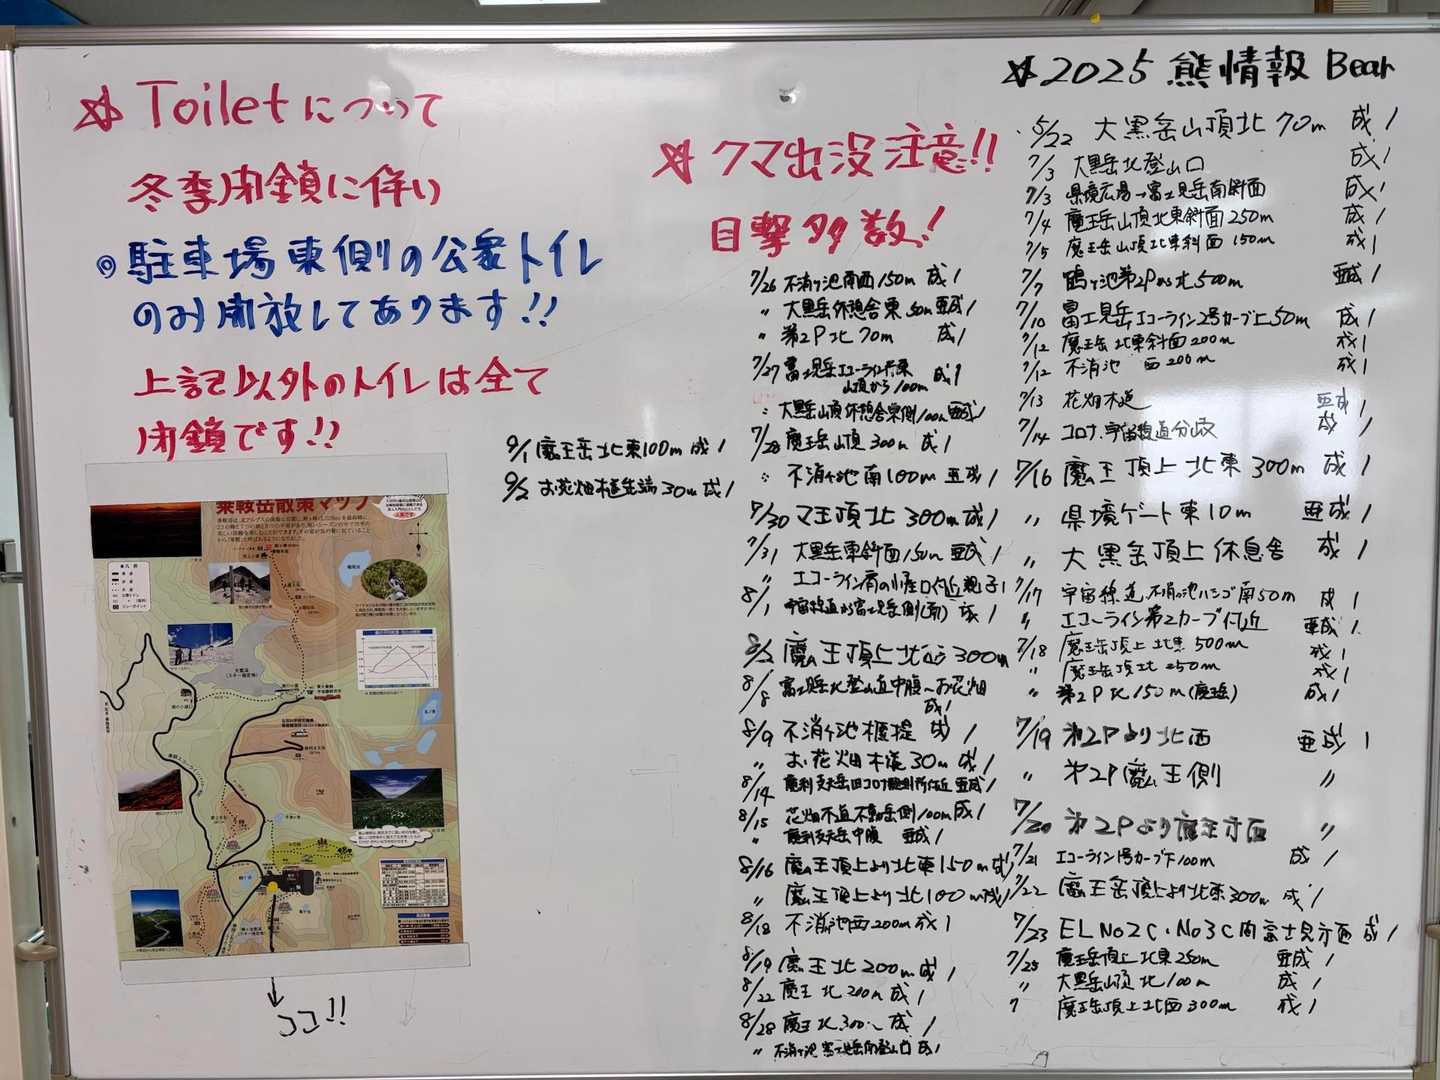 ☆ Toiletについて
冬季閉鎖に伴い
◎駐車場東側の公衆トイレ
のみ開放してあります!!
上記以外のトイレは全て
閉鎖です!!
乗鞍岳散策マップ
ココ!!
9/1 魔王岳北東100m 成1
9/2 お花畑木道先端30m 成1
☆ クマ出没注意!!
目撃多数!
7/26 不消ヶ池南西150m 成1
〃 大黒岳休憩舎東50m 亜成1
〃 第2P北70m 成1
7/27 富士見岳エコーライン
山頂から100m 成1
大黒岳山頂休憩舎東側100m 亜成1
7/28 魔王岳山頂300m 成1
不消ヶ池南100m 亜成1
7/30 マ王頂北300m 成1
7/31 大黒岳東斜面150m 亜成1
〃 エコーライン 付近 親子1
8/1 宇宙線道から富士見岳側(南) 成1
8/2 魔王頂上北 300m
8/8 富士見岳北登山道中腹〜お花畑
成1
8/9 不消ヶ池 成1
〃 お花畑木道30m 成1
8/14 摩利支天岳旧コロナ観測所付近 亜成1
8/15 花畑木道不動岳側100m 成1
〃 摩利支天岳中腹 亜成1
8/16 魔王頂上より北東150m 成1
〃 魔王頂上より北100m 成1
8/18 不消池西200m 成1
8/19 魔王北200m 成1
8/22 魔王北200m 成1
8/28 魔王北300m 成1
〃 不消ヶ池 富士見岳南登山口 成1
☆2025 熊情報 Bear
5/22 大黒岳山頂北70m 成1
7/3 大黒岳北登山口 成1
7/3 県境広場→富士見岳南斜面 成1
7/4 魔王岳山頂北東斜面250m 成1
7/5 魔王岳山頂北東斜面150m 成1
7/7 鶴ヶ池第2Pから北500m 亜成1
7/10 富士見岳エコーライン2号カーブ上50m 成1
7/12 魔王岳北東斜面200m 成1
7/12 不消池 西200m 成1
7/13 花畑木道 亜成1
7/14 コロナ、宇宙線道分岐 成1
7/16 魔王頂上北東300m 成1
〃 県境ゲート東10m 亜成1
〃 大黒岳頂上休息舎 成1
7/17 宇宙線道、不消の池ハシゴ南50m 成1
〃 エコーライン第2カーブ付近 亜成1
7/18 魔王岳頂上北東500m 成1
〃 魔王岳頂北250m 成1
〃 第2P北150m(魔王岳) 成1
7/19 第2Pより北西 亜成1
〃 第2P魔王側 〃
7/20 第2Pより魔王方面 〃
7/21 エコーライン1号カーブ下100m 成1
7/22 魔王岳頂上より北東300m 成1
7/23 EL No2C・No3C間富士見方面 成1
7/25 魔王岳頂上北東250m 亜成1
〃 大黒岳山頂北100m 成1
〃 魔王岳頂上北西300m 成1